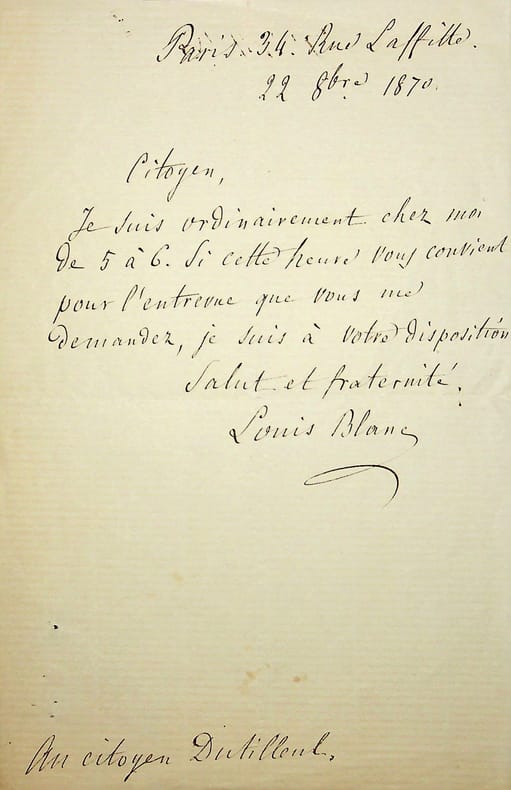 Paris 34 Rue Laffitte.
22 8bre 1870.
Citoyen,
Je suis ordinairement chez moi
de 5 à 6. Si cette heure vous convient
pour l'entrevue que vous me
demandez, je suis à votre disposition
Salut et fraternité.
Louis Blanc
Au citoyen Dutilleul.